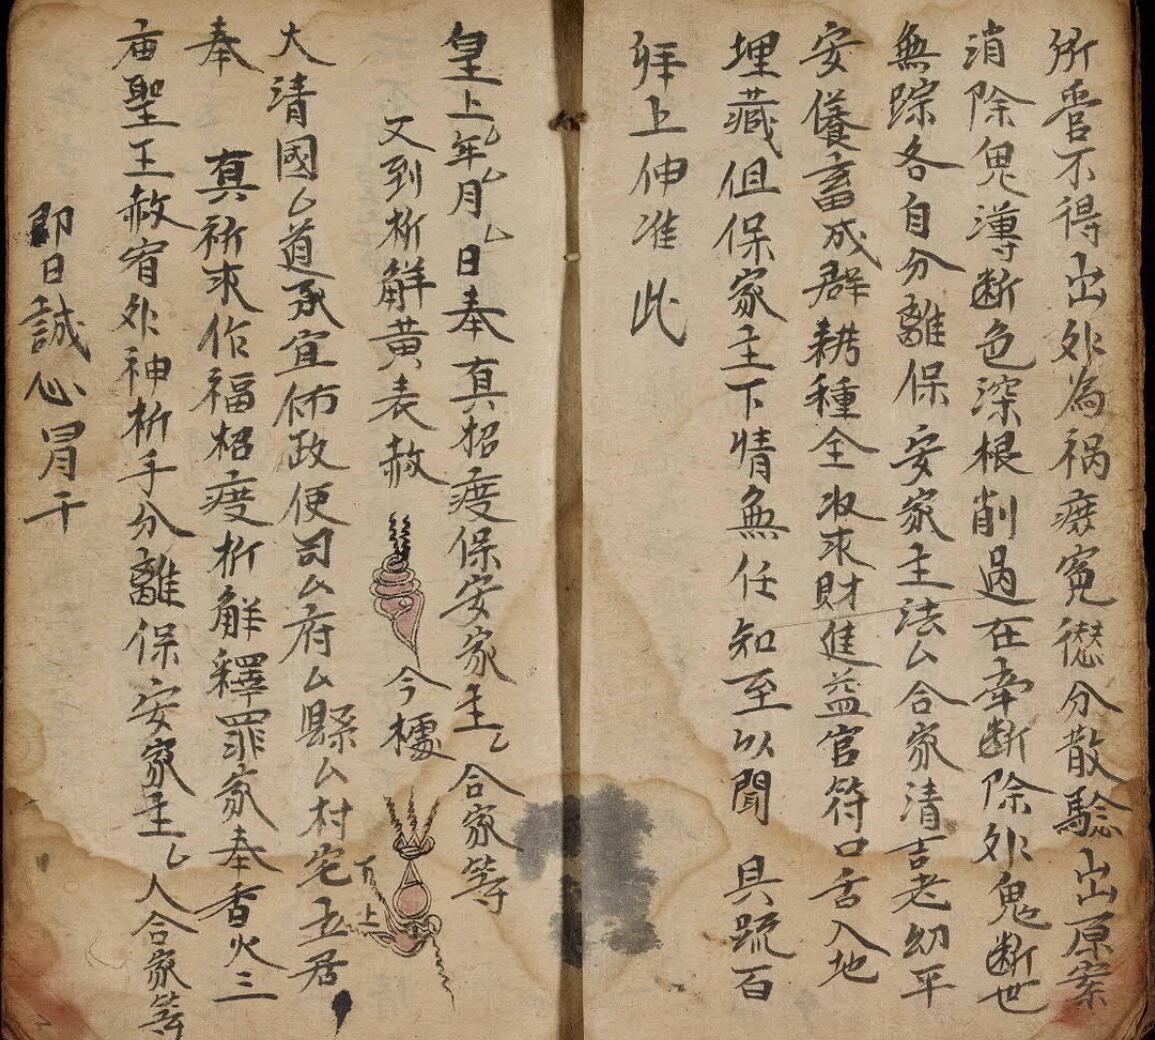 所管不得出外為禍癈寃𠎝分散驗出原案
消除鬼薄断色深根削過在牽断除外鬼断世
無踪各自分離保安家主法厶合家清吉老幼平
安儀養畜成群耕種全收求財進益官符口舌入地
埋藏但保家主下情無任知至以聞 具䟽百
拜上伸准此
皇上乙年乙月乙日奉真招度保安家主乙合家等
又到祈解黄表赦 今櫖
大清國乙道承宣佈政使司厶府厶縣厶村宅立居
奉 真祈求作福招度祈解釋罪家奉香火三
庙聖王赦宥外神祈手分離保安家主乙人合家等
即日誠心冒干
下
上